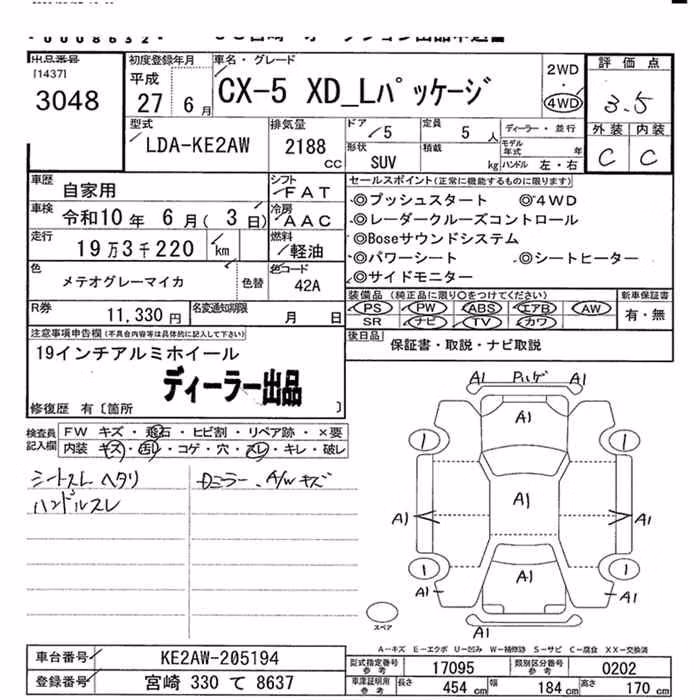 出品番号
[1437]
3048
初度登録年月
平成
27 6 月
車名・グレード
CX-5 XD_Lパッケージ
2WD
・
4WD
評価点
3.5
外装 内装
C C
型式
LDA-KE2AW
排気量
2188
CC
ドア
5
定員
5 人
ディーラー・並行
形状
SUV
積載
kg
モデル年式 年
ハンドル 左・右
車歴
自家用
シフト
FAT
車検
令和10年 6月( 3日)
冷房
AAC
走行
19万3千220 km
燃料
軽油
色
メテオグレーマイカ
色替
色コード
42A
R券
11,330円
名変通知期限
月 日
セールスポイント(正常に機能するものに限ります)
◎プッシュスタート ◎4WD
◎レーダークルーズコントロール
◎Boseサウンドシステム
◎パワーシート ◎シートヒーター
◎サイドモニター
装備品 (純正品に限り○をつけてください)
PS PW ABS エアB AW
SR ナビ TV カワ
新車保証書
有・無
後日品
保証書・取説・ナビ取説
注意事項申告欄(不具合内容等は具体的に記入して下さい)
19インチアルミホイール
ディーラー出品
修復歴 有〔箇所 〕
検査員
記入欄
FW キズ・飛石・ヒビ割・リペア跡・×要
内装 キズ・汚レ・コゲ・穴・スレ・キレ・破レ
シートスレ ヘタリ
ハンドルスレ
Dミラー、A/Wキズ
A1 A1
A1
1 1
A1 A1 A1
1 1
A1 A1 A1
スペア
A1 A1
A-キズ E-エクボ U-凹み W-補修跡 S-サビ C-腐食 XX-交換済
車台番号
KE2AW-205194
登録番号
宮崎 330 て 8637
型式指定番号
参考
17095
類別区分番号
参考
0202
車庫証明用
参考
長さ
454 cm
幅
184 cm
高さ
170 cm